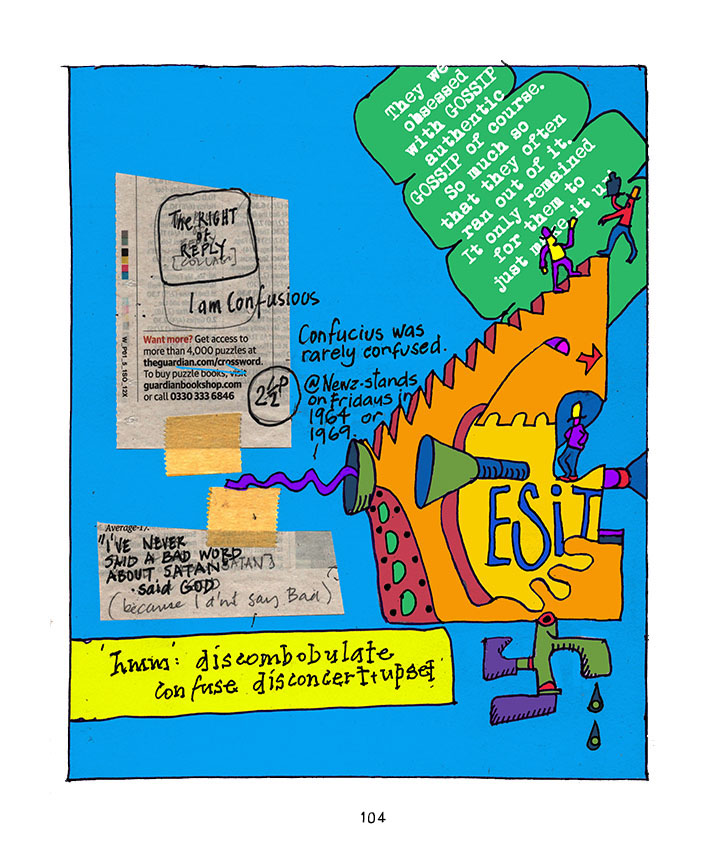 They we
obsessed
with GOSSIP
authentic
GOSSIP of course.
So much so
that they often
ran out of it.
It only remained
for them to
just make it up
The RIGHT
of
REPLY
[COLLAGE]
I am Confusioos
Want more? Get access to
more than 4,000 puzzles at
theguardian.com/crossword.
To buy puzzle books, visit
guardianbookshop.com
or call 0330 333 6846
Confucius was
rarely confused.
@Newz-stands
on fridays in
1964 or
1969.
ESiT
Average-17.
"I'VE NEVER
SAID A BAD WORD
ABOUT SATAN"
SATAN]
said GOD
(because I dn't say Bad)
'hmm': discombobulate
confuse disconcert++upset
104